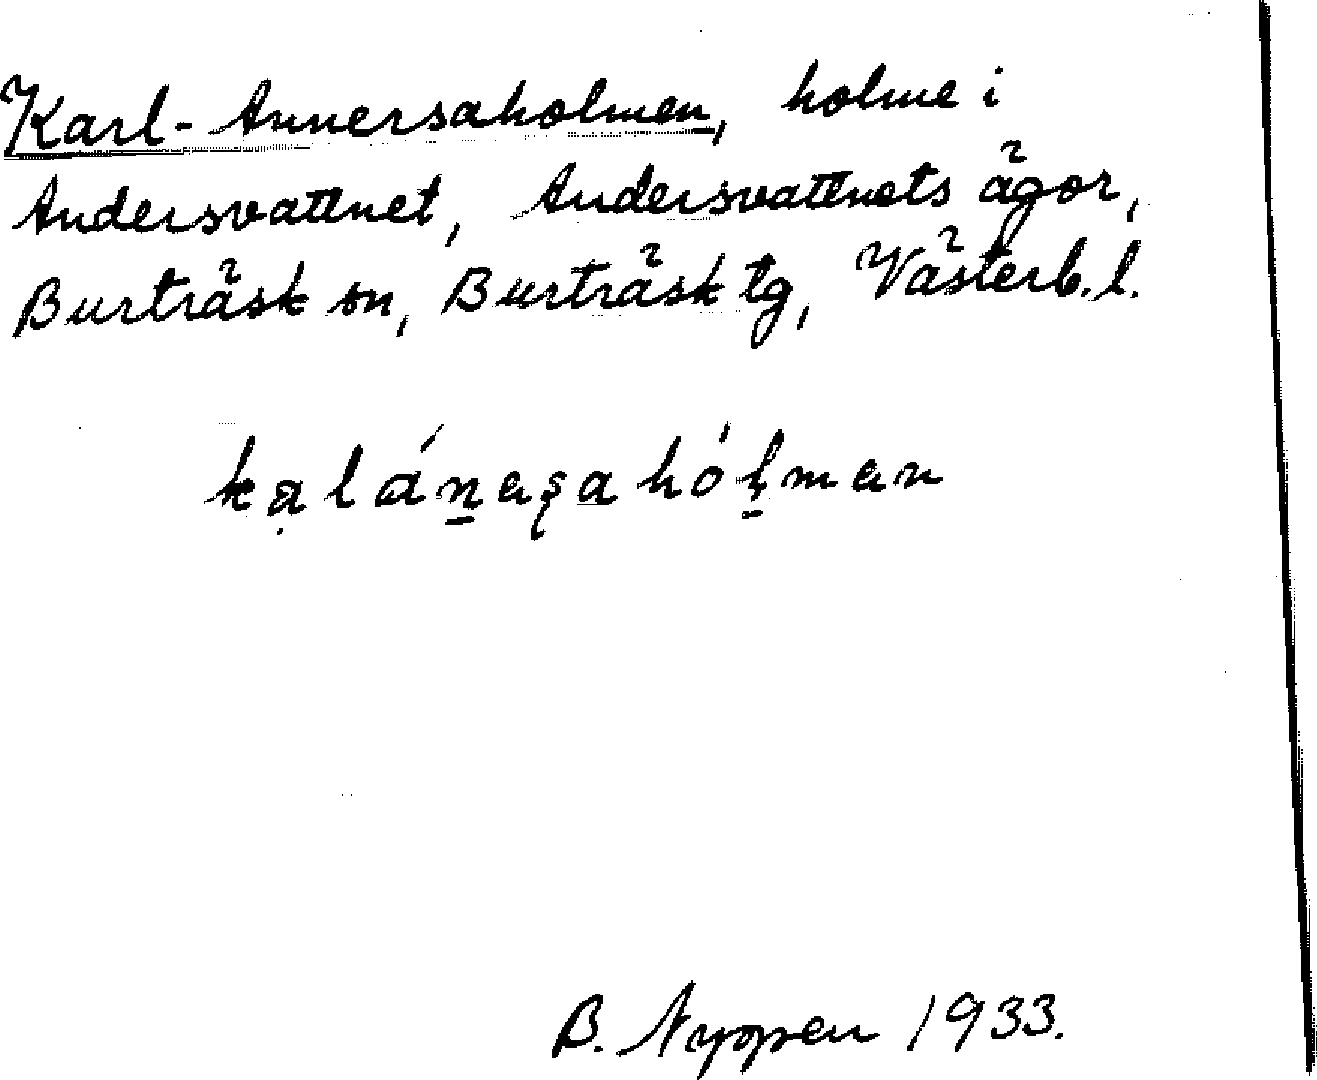 Karl-Annersaholmen, holme i
Andersvattnet, Andersvattnets ägor,
Burträsk sn, Burträsk tg, Västerb.l.
kạláṉaʂahóḷman
B. Nyppen 1933.